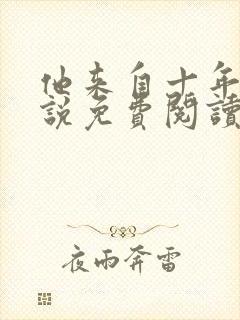 他来自十年
說免費閱讀
夜雨奔雷